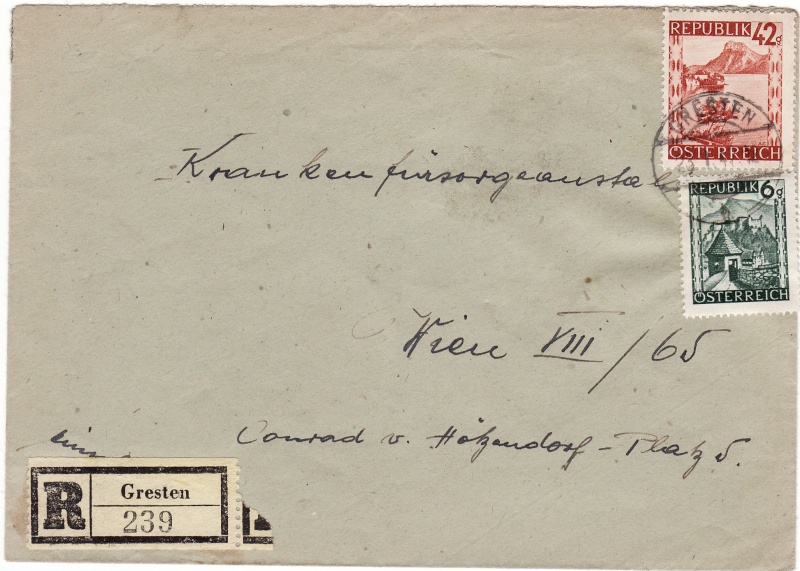 REPUBLIK 42g
ÖSTERREICH
GRESTEN
REPUBLIK 6g
ÖSTERREICH
Krankenfürsorgeanstal
Wien VIII/65
Conrad v. Hötzendorf-Platz 5.
R Gresten
239